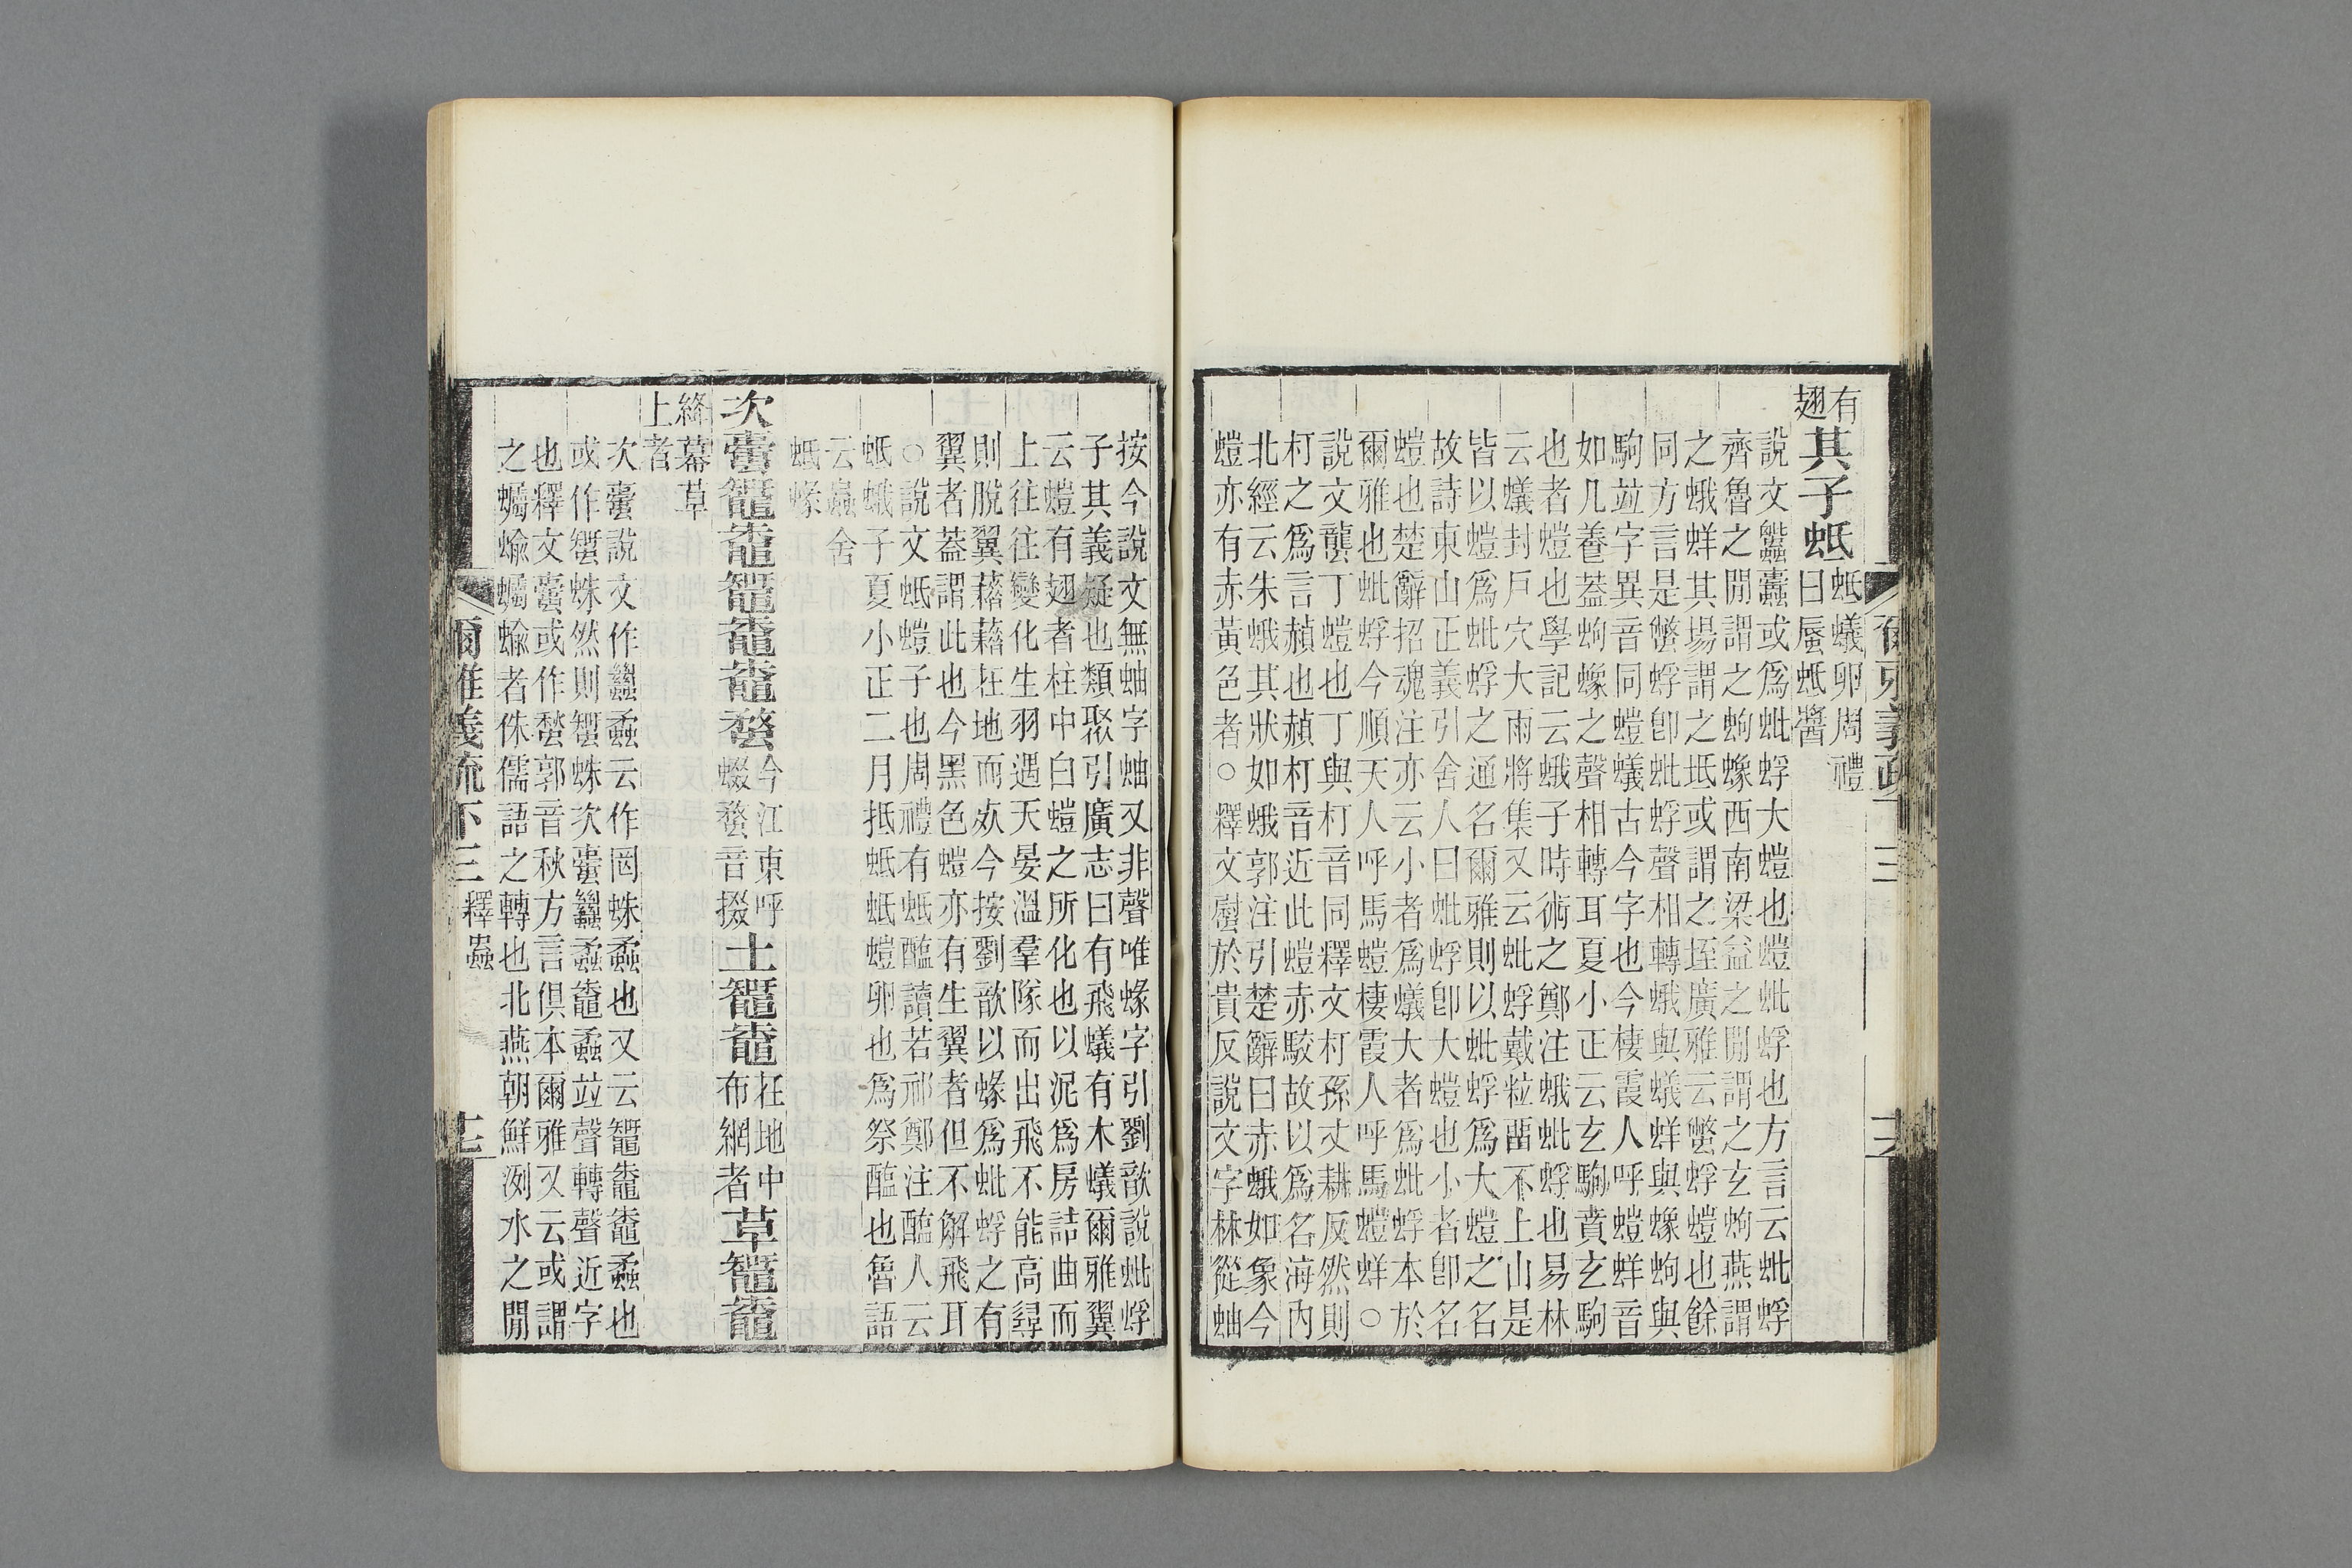 有
翅
其子蚳
蚳蟻卵周禮
曰蜃蚳醬
說文或爲蚍蜉大螘也螘蚍蜉也方言云蚍蜉
齊魯之閒謂之蚼蟓西南梁益之閒謂之玄蚼燕謂
之蛾蛘其場謂之坻或謂之垤廣雅云蟞蜉螘也餘
同方言是蟞蜉卽蚍蜉聲相轉蛾與蟻蛘與蟓蚼與
駒竝字異音同螘蟻古今字也今棲霞人呼螘蛘音
如几養蓋蚼蟓之聲相轉耳夏小正云玄駒賁玄駒
也者螘也學記云蛾子時術之鄭注蛾蚍蜉也易林
云蟻封戶穴大雨將集又云蚍蜉戴粒畱不上山是
皆以螘爲蚍蜉之通名爾雅則以蚍蜉爲大螘之名
故詩東山正義引舍人曰蚍蜉卽大螘也小者卽名
螘也楚辭招魂注亦云小者爲蟻大者爲蚍蜉本於
爾雅也蚍蜉今順天人呼馬螘棲霞人呼馬螘蛘○
說文蠪丁螘也丁與朾音同釋文朾孫丈耕反然則
朾之爲言赬也赬朾音近此螘赤駮故以爲名海內
北經云朱蛾其狀如蛾郭注引楚辭曰赤蛾如象今
螘亦有赤黃色者○釋文於貴反說文字林從䖵
爾雅義疏下三
六
按今說文無䖵字䖵又非聲唯蝝字引劉歆說蚍蜉
子其義疑也類聚引廣志曰有飛蟻有木蟻爾雅翼
云螘有翅者柱中白螘之所化也以泥爲房詰曲而
上往往變化生羽遇天晏溫羣隊而出飛不能高尋
則脫翼藉藉在地而死今按劉歆以蝝爲蚍蜉之有
翼者蓋謂此也今黑色螘亦有生翼者但不解飛耳
○說文蚳螘子也周禮有蚳醢讀若祁鄭注醢人云
蚳蛾子夏小正二月抵蚳蚳螘卵也爲祭醢也魯語
云蟲舍
蚳蝝
次蟗鼅鼄鼅鼄鼄蝥
今江東呼
蝃蝥音掇
土鼅鼄
在地中
布網者
草鼅鼄
絡幕草
上者
次蟗說文作蠿蟊云作罔蛛蟊也又云鼅鼄鼄蟊也
或作䵹蛛然則䵹蛛次蟗蠿蟊鼄蟊竝聲轉聲近字
也釋文蟗或作蝥郭音秋方言俱本爾雅又云或謂
之蠾蝓蠾蝓者侏儒語之轉也北燕朝鮮洌水之閒
爾雅義疏下三
釋蟲
七